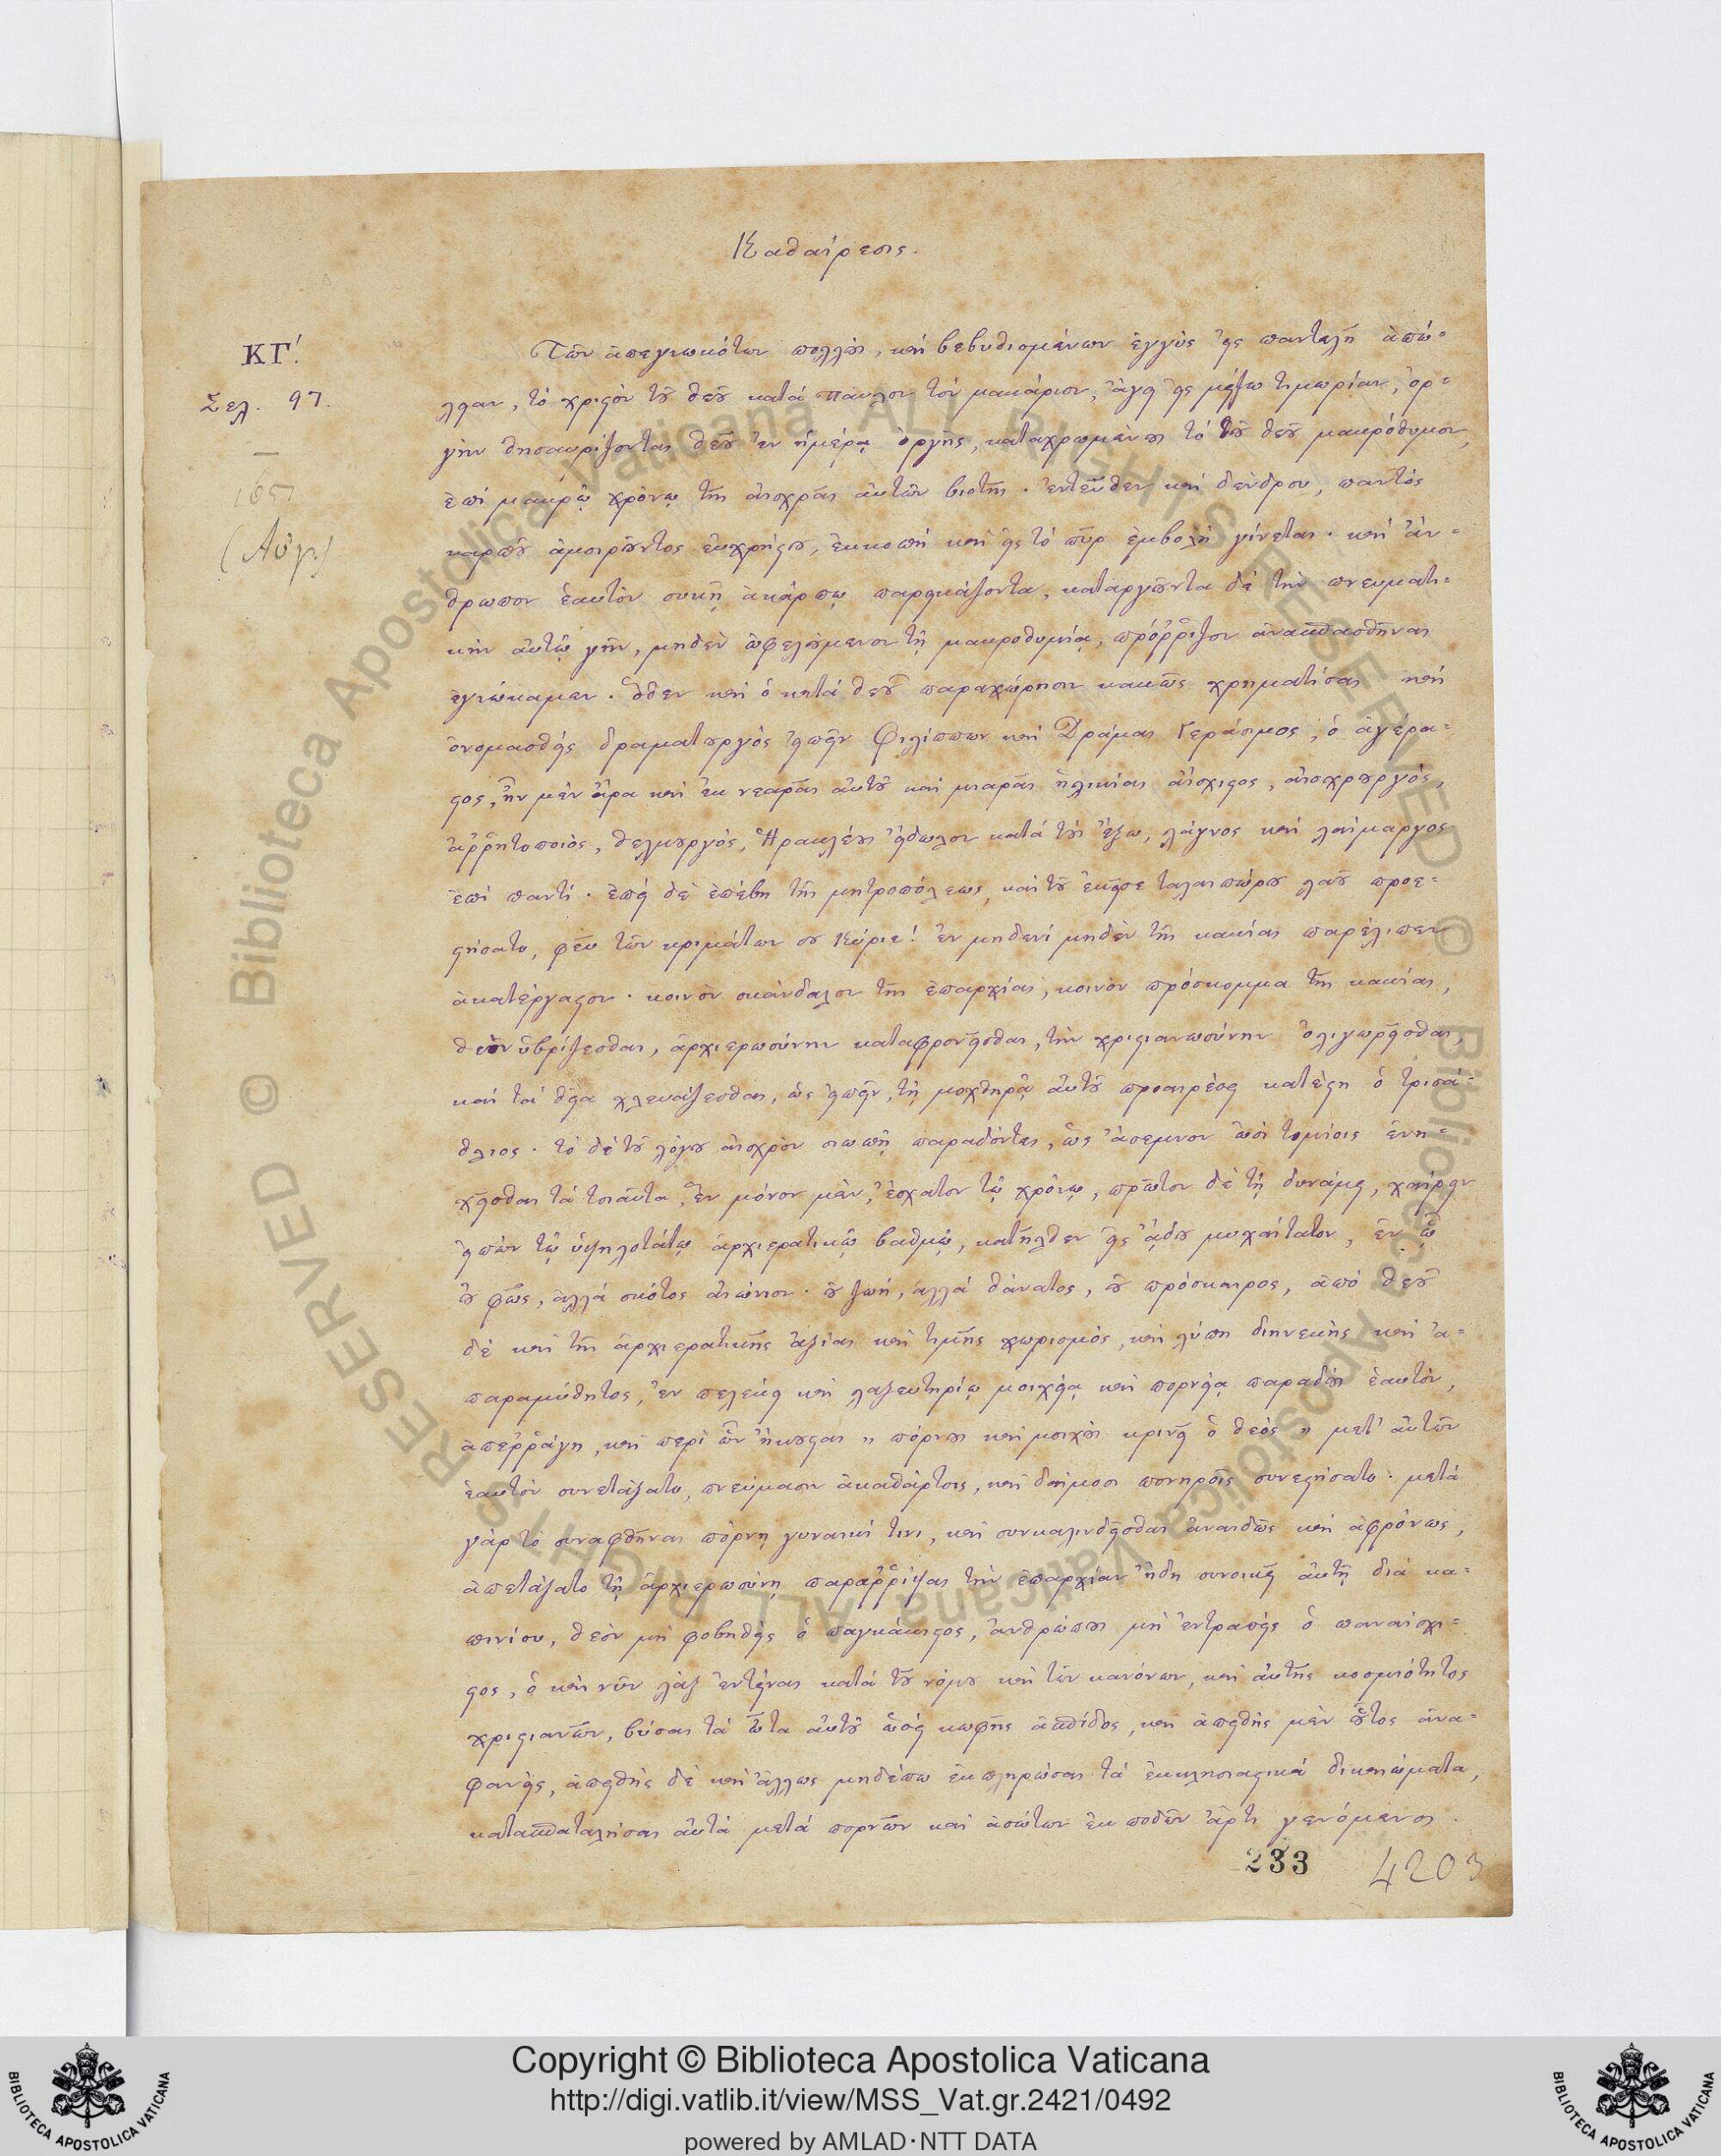 Καθαίρεσις.
ΚΓ΄.
Σελ. 97.
1651
(Αὔγ.)
Τῶν ἀπεγνωκότων πολλοῖς, καὶ βεβυθισμένων ἐγγὺς εἰς παντελῆ ἀπώ=
λειαν, τὸ χρηστὸν τοῦ θεοῦ κατὰ Παῦλον τὸν μακάριον, ἄγει εἰς μείζω τιμωρίαν, ὀρ=
γὴν θησαυρίζοντας θεοῦ ἐν ἡμέρᾳ ὀργῆς, καταχρωμένοις τὸ τοῦ θεοῦ μακρόθυμον,
ἐπὶ μακρῷ χρόνῳ τῆς αἰσχρᾶς αὐτῶν βιοτῆς. ἐντεῦθεν καὶ δένδρου, παντὸς
καρποῦ ἀμοιροῦντος εὐχρήστου, ἐκκοπὴ καὶ εἰς τὸ πῦρ ἐμβολὴ γίνεται· καὶ ἄν=
θρωπον ἑαυτὸν συκῇ ἀκάρπῳ παρεικάζοντα, καταργοῦντα δὲ τὴν πνευματι=
κὴν αὐτῷ γῆν, μηδὲν ὠφελούμενον τῇ μακροθυμίᾳ, πρόῤῥιζον ἀνασπασθῆναι
ἐγνώκαμεν. ὅθεν καὶ ὁ κατὰ θεοῦ παραχώρησιν κακῶς χρηματίσας καὶ
ὀνομασθεὶς δραματουργὸς εἰπεῖν Φιλίππων καὶ Δράμας Γεράσιμος, ὁ ἀγέρα=
στος, ἦν μὲν ἄρα καὶ ἐκ νεαρᾶς αὐτοῦ καὶ μιαρᾶς ἡλικίας αἴσχιστος, αἰσχρουργός,
ἀῤῥητοποιός, θελγουργός, Ἡρακλέους εἴδωλον κατὰ τοὺς ἔξω, λάγνος καὶ λαίμαργος
ἐπὶ παντί. ἐπεὶ δὲ ἐπέβη τῆς μητροπόλεως, καὶ τοῦ ἐκεῖσε ταλαιπώρου λαοῦ προε=
στήσατο, φεῦ τῶν κριμάτων σου Κύριε! ἐν μηδενὶ μηδὲν τῆς κακίας παρέλιπεν
ἀκατέργαστον· κοινὸν σκάνδαλον τῆς ἐπαρχίας, κοινὸν πρόσκομμα τῆς κακίας,
θεὸν ὑβρίζεσθαι, ἀρχιερωσύνην καταφρονεῖσθαι, τὴν χριστιανωσύνην ὀλιγωρεῖσθαι,
καὶ τὰ θεῖα χλευάζεσθαι, ὡς εἰπεῖν, τῇ μοχθηρᾷ αὐτοῦ προαιρέσει κατέστη ὁ τρισά=
θλιος. τὸ δὲ τοῦ λόγου αἰσχρὸν σιωπῇ παραδόντες, ὡς ἄσεμνον ὠσὶ τιμίοις ἐνη=
χεῖσθαι τὰ τοιαῦτα, ἓν μόνον μὲν, ἔσχατον τῷ χρόνῳ, πρῶτον δὲ τῇ δυνάμει, χαίρειν
εἰπὼν τῷ ὑψηλοτάτῳ ἀρχιερατικῷ βαθμῷ, κατῆλθεν εἰς ᾅδου μυχαίτατον, ἐν ᾧ
οὐ φῶς, ἀλλὰ σκότος αἰώνιον· οὐ ζωή, ἀλλὰ θάνατος, οὐ πρόσκαιρος, ἀπὸ θεοῦ
δὲ καὶ τῆς ἀρχιερατικῆς ἀξίας καὶ τιμῆς χωρισμός, καὶ λύπη διηνεκὴς καὶ ἀ=
παραμύθητος, ἐν πελέκει καὶ λαξευτηρίῳ μοιχείᾳ καὶ πορνείᾳ παραδοὺς ἑαυτόν,
ἀπεῤῥάγη, καὶ περὶ ὧν ἤκουσται „ πόρνους καὶ μοιχοὺς κρινεῖ ὁ θεός „ μετ' αὐτῶν
ἑαυτὸν συνετάξατο, πνεύμασιν ἀκαθάρτοις, καὶ δαίμοσι πονηροῖς συνεστήσατο· μετὰ
γὰρ τὸ συναφθῆναι πόρνῃ γυναικί τινι, καὶ συγκαλινδεῖσθαι ἀναιδῶς καὶ ἀφρόνως,
ἀπετάξατο τῇ ἀρχιερωσύνῃ παραῤῥίψας τὴν ἐπαρχίαν ἤδη συνοικεῖ αὐτῇ διὰ κα=
πινίου, θεὸν μὴ φοβηθεὶς ὁ παγκάκιστος, ἀνθρώπους μὴ ἐντραπεὶς ὁ παναίσχι=
στος, ὁ καὶ νῦν λὰξ ἐντείνας κατὰ τοῦ νόμου καὶ τῶν κανόνων, καὶ αὐτῆς κοσμιότητος
χριστιανῶν, βύσας τὰ ὦτα αὐτοῦ ὡσεὶ κωφῆς ἀσπίδος, καὶ ἀπειθὴς μὲν οὗτος ἀνα=
φανείς, ἀπειθὴς δὲ καὶ ἄλλως μηδέπω ἐκπληρώσας τὰ ἐκκλησιαστικὰ δικαιώματα,
κατασπαταλήσας αὐτὰ μετὰ πορνῶν καὶ ἀσώτων ἐκ ποδῶν ἄρτι γενόμενος.
233 4203
Copyright © Biblioteca Apostolica Vaticana
http://digi.vatlib.it/view/MSS_Vat.gr.2421/0492
powered by AMLAD·NTT DATA